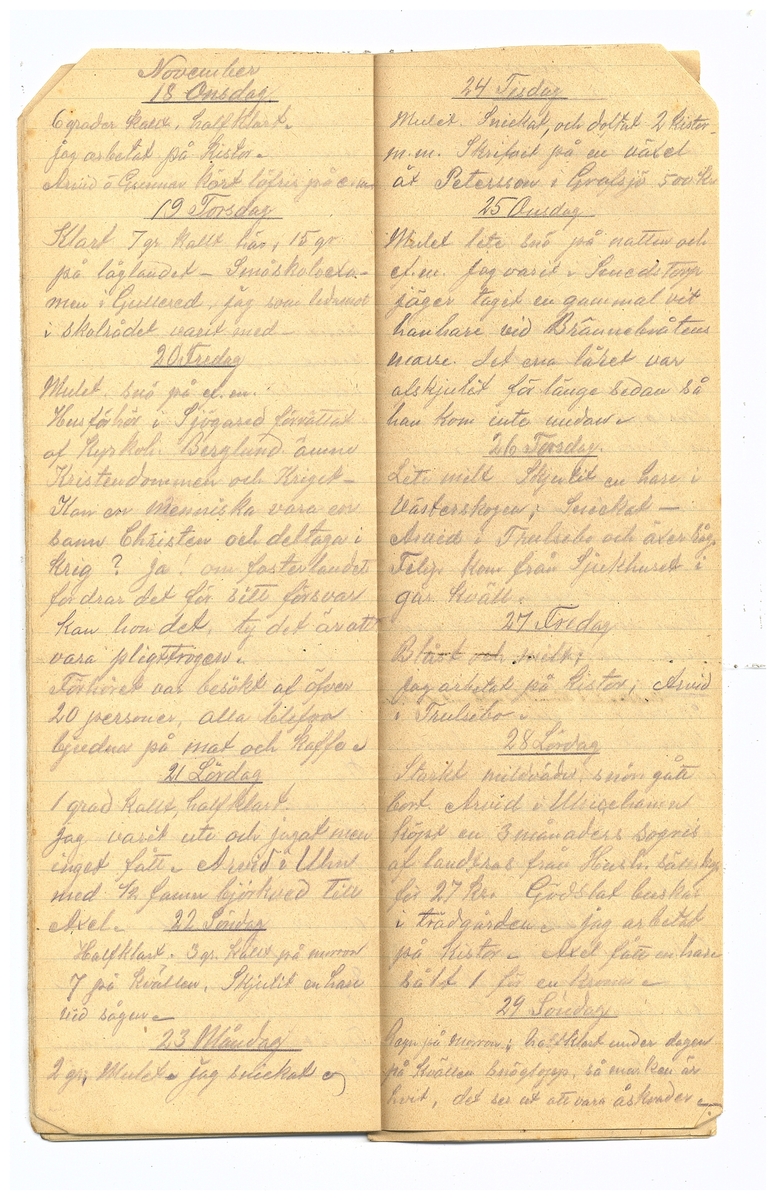 November
18 Onsdag
6 grader kallt, halfklart.
jag arbetat på kistor.
Arvid o Gunnar kört löfris på e.m
19 Torsdag
Klart 7 gr kallt här, 15 gr
på låglandet – Småskoleexa-
men i Gullered, jag som ledamot
i skolrådet varit med –
20 Fredag
Mulet. snö på e.m.
Husförhör i Sjögared förrättat
af Kyrkoh. Berglund ämne
Kristendommen och Kriget –
Kan en Menniska vara en
sann Christen och deltaga i
Krig? ja! om fosterlandet
fordrar det för sitt försvar
kan hon det, ty det är att
vara pligttrogen.
Förhöret var besökt af öfver
20 personer, alla blefvo
bjudna på mat och kaffe
21 Lördag
1 grad kallt, halfklart.
jag varit ute och jagat men
inget fått. Arvid i Uhn
med ½ famn björkved till
Axel. 22 Söndag
Halfklart. 3 gr. kallt på morron
7 på kvällen. Skjutit en hare
vid sågen
23 Måndag
2 gr, Mulet. jag snickat
24 Tisdag
Mulet. Snickat, och doltat 2 kistor
m.m. Skrifvit på en växel
åt Petersson i Grafsjö 500 Kr
25 Onsdag
Mulet lite snö på natten och
ef.m. jag varit i Smedstorp
jäger tagit en gammal vit
hanhare vid Brännebråtens
mosse. det ena låret var
afskjutit för länge sedan så
han kom inte undan
26 Torsdag
Lite milt Skjutit en hare i
Västerskogen, Snickat –
Arvid i Trulsebo och äxer
Felix kom från Sjukhuset i
går kväll.
27 Fredag
Blåst och milt,
jag arbetat på kistor, Arvid
i Trulsebo.
28 Lördag
Starkt mildväder, snön gått
bort. Arvid i Ulricehamn
köpt en 3 månaders sogris
af landtras från
för 27 kr. Gödslat buskar
i trädgården. jag arbetat
på kistor. Axel fått en hare
sålt 1 för en krona
29 Söndag
Regn på morron; halfklart under dagen
på kvällen snöglopp, så marken är
hvit, det ser ut att vara åskväder